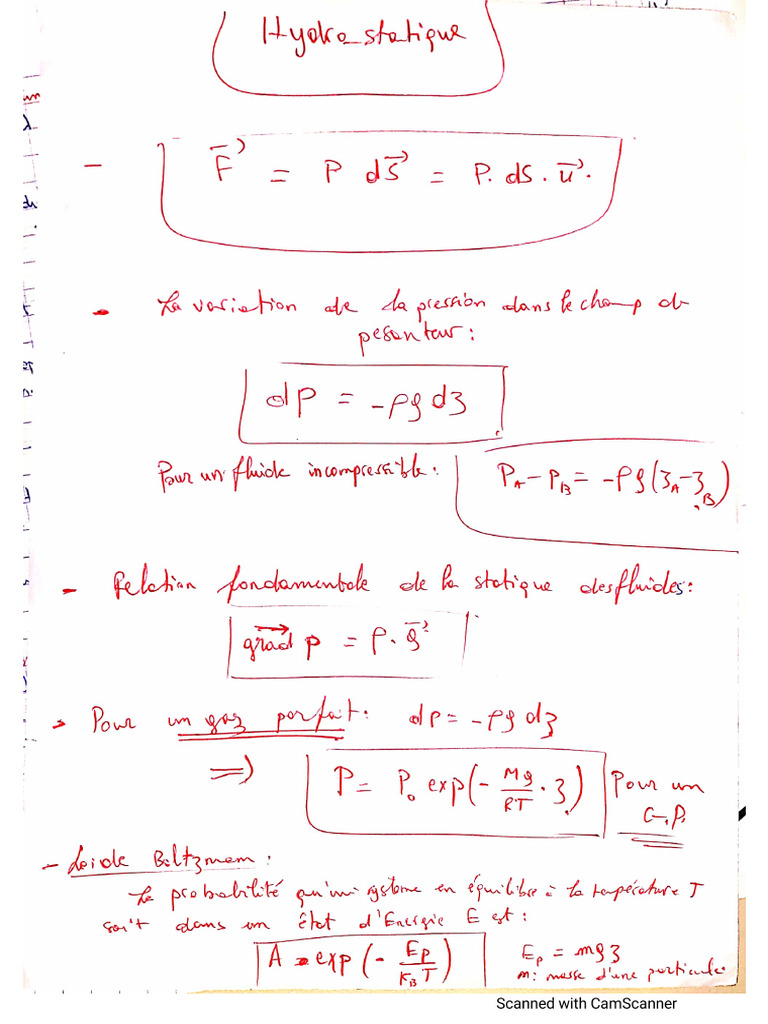 Hydrostatique
- F⃗ = P dS⃗ = P. dS. u⃗.
- La variation de la pression dans le champ de
pesanteur :
dP = -ρg dz
Pour un fluide incompressible : P_A - P_B = -ρg(z_A - z_B)
- Relation fondamentale de la statique des fluides :
grad⃗ p = ρ. g⃗
- Pour un gaz parfait : dP = -ρg dz
=> P = P₀ exp(- Mg/RT . z) Pour un
G.P.
- Loi de Boltzmann :
La probabilité qu'un système en équilibre à la température T
soit dans un état d'Energie E est :
A exp(- Ep/K_B T) Ep = mgz
m : masse d'une particule
Scanned with CamScanner